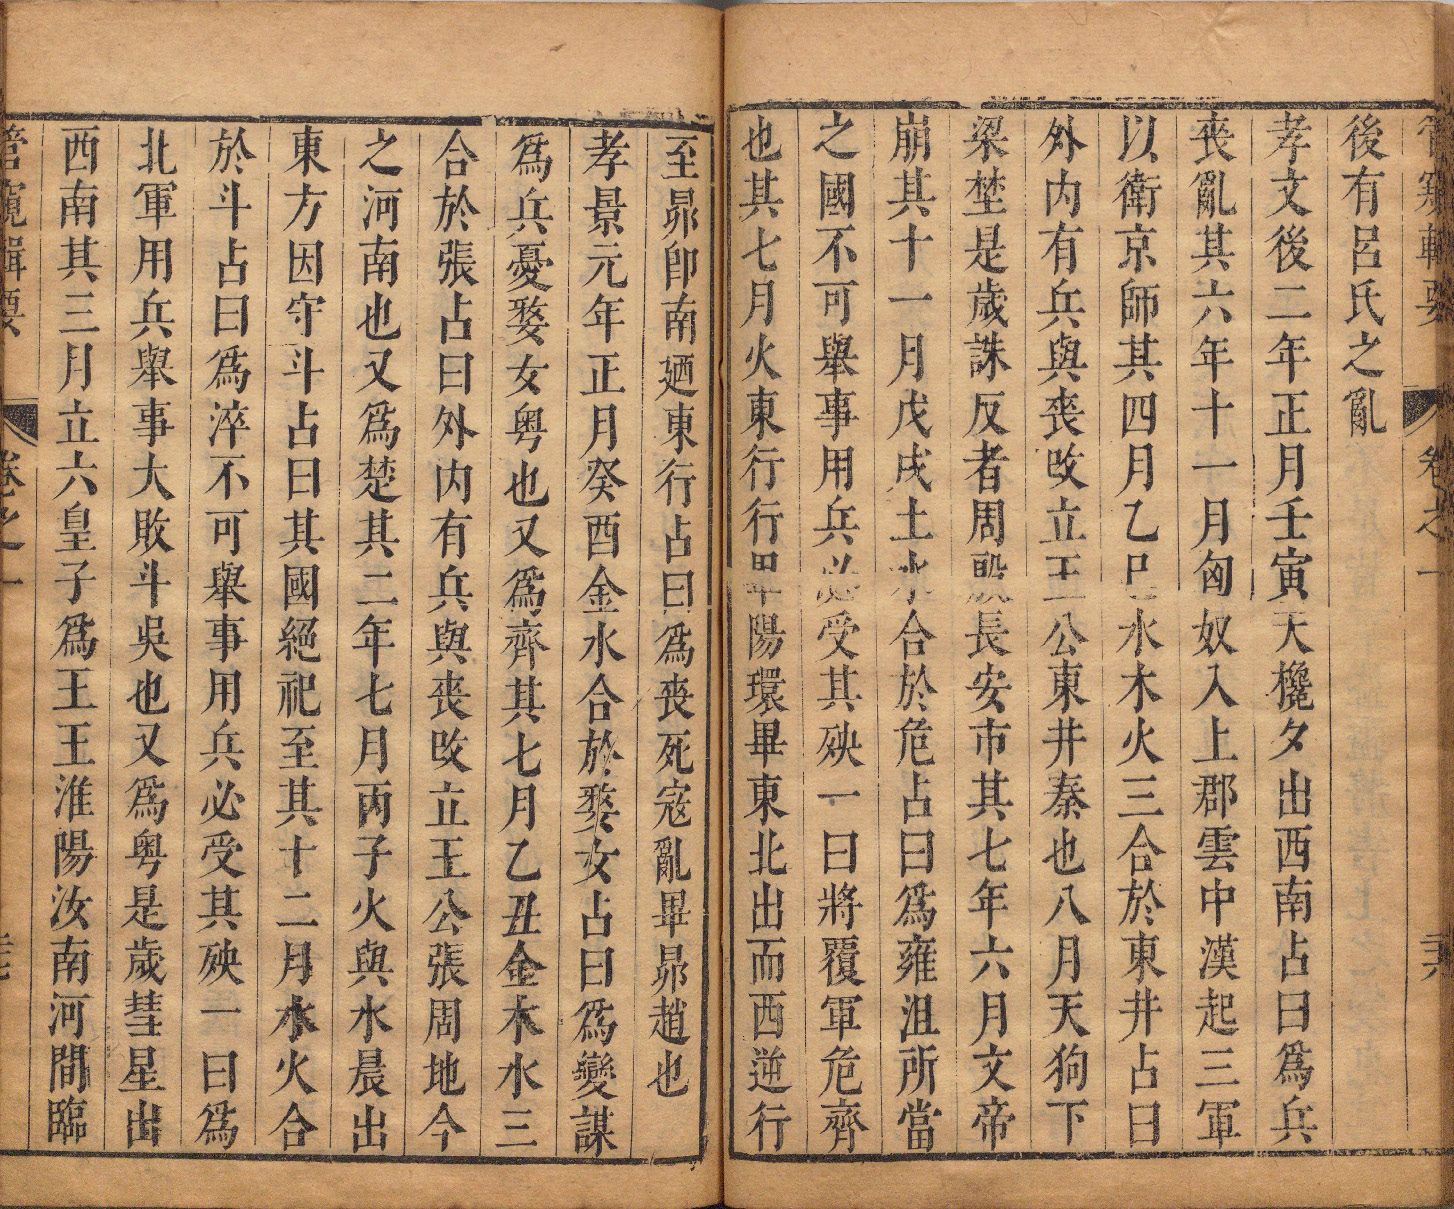 管窺輯要 卷之一 三六
後有呂氏之亂
孝文後二年正月壬寅天欃夕出西南占曰爲兵
喪亂其六年十一月匈奴入上郡雲中漢起三軍
以衛京師其四月乙巳水木火三合於東井占曰
外内有兵與喪攺立王公東井秦也八月天狗下
梁埜是歲誅反者周殷長安市其七年六月文帝
崩其十一月戊戌土水合於危占曰爲雍沮所當
之國不可舉事用兵必受其殃一曰將覆軍危齊
也其七月火東行行畢陽環畢東北出而西逆行
至昴卽南廼東行占曰爲喪死寇亂畢昴趙也
孝景元年正月癸酉金水合於婺女占曰爲變謀
爲兵憂婺女粤也又爲齊其七月乙丑金木水三
合於張占曰外内有兵與喪攺立王公張周地今
之河南也又爲楚其二年七月丙子火與水晨出
東方因守斗占曰其國絕祀至其十二月水火合
於斗占曰爲淬不可舉事用兵必受其殃一曰爲
北軍用兵舉事大敗斗吳也又爲粤是歲彗星出
西南其三月立六皇子爲王王淮陽汝南河間臨
管窺輯要 卷之一